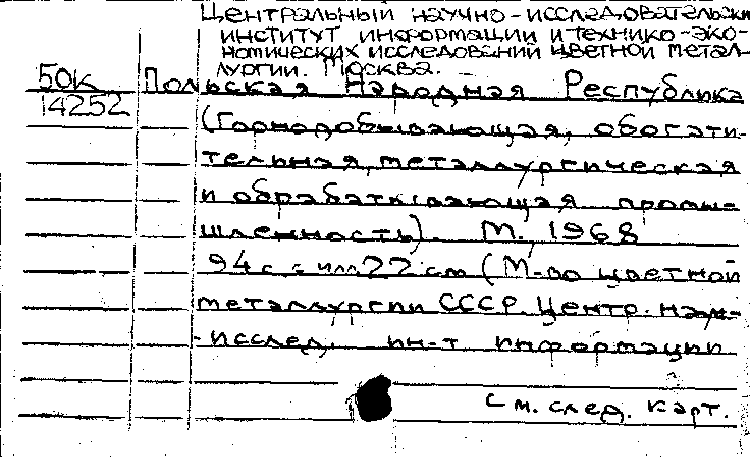 Центральный научно-исследовательский
институт информации и технико-эко-
номических исследований цветной метал-
лургии. Москва.
50к Польская Народная Республика
14252 (Горнодобывающая, обогати-
тельная, металлургическая
и обрабатывающая промы-
шленность). М. 1968
94 с. с илл. 22 см (М-во цветной
металлургии СССР. Центр. науч-
-исслед. ин-т информации
См. след. карт.